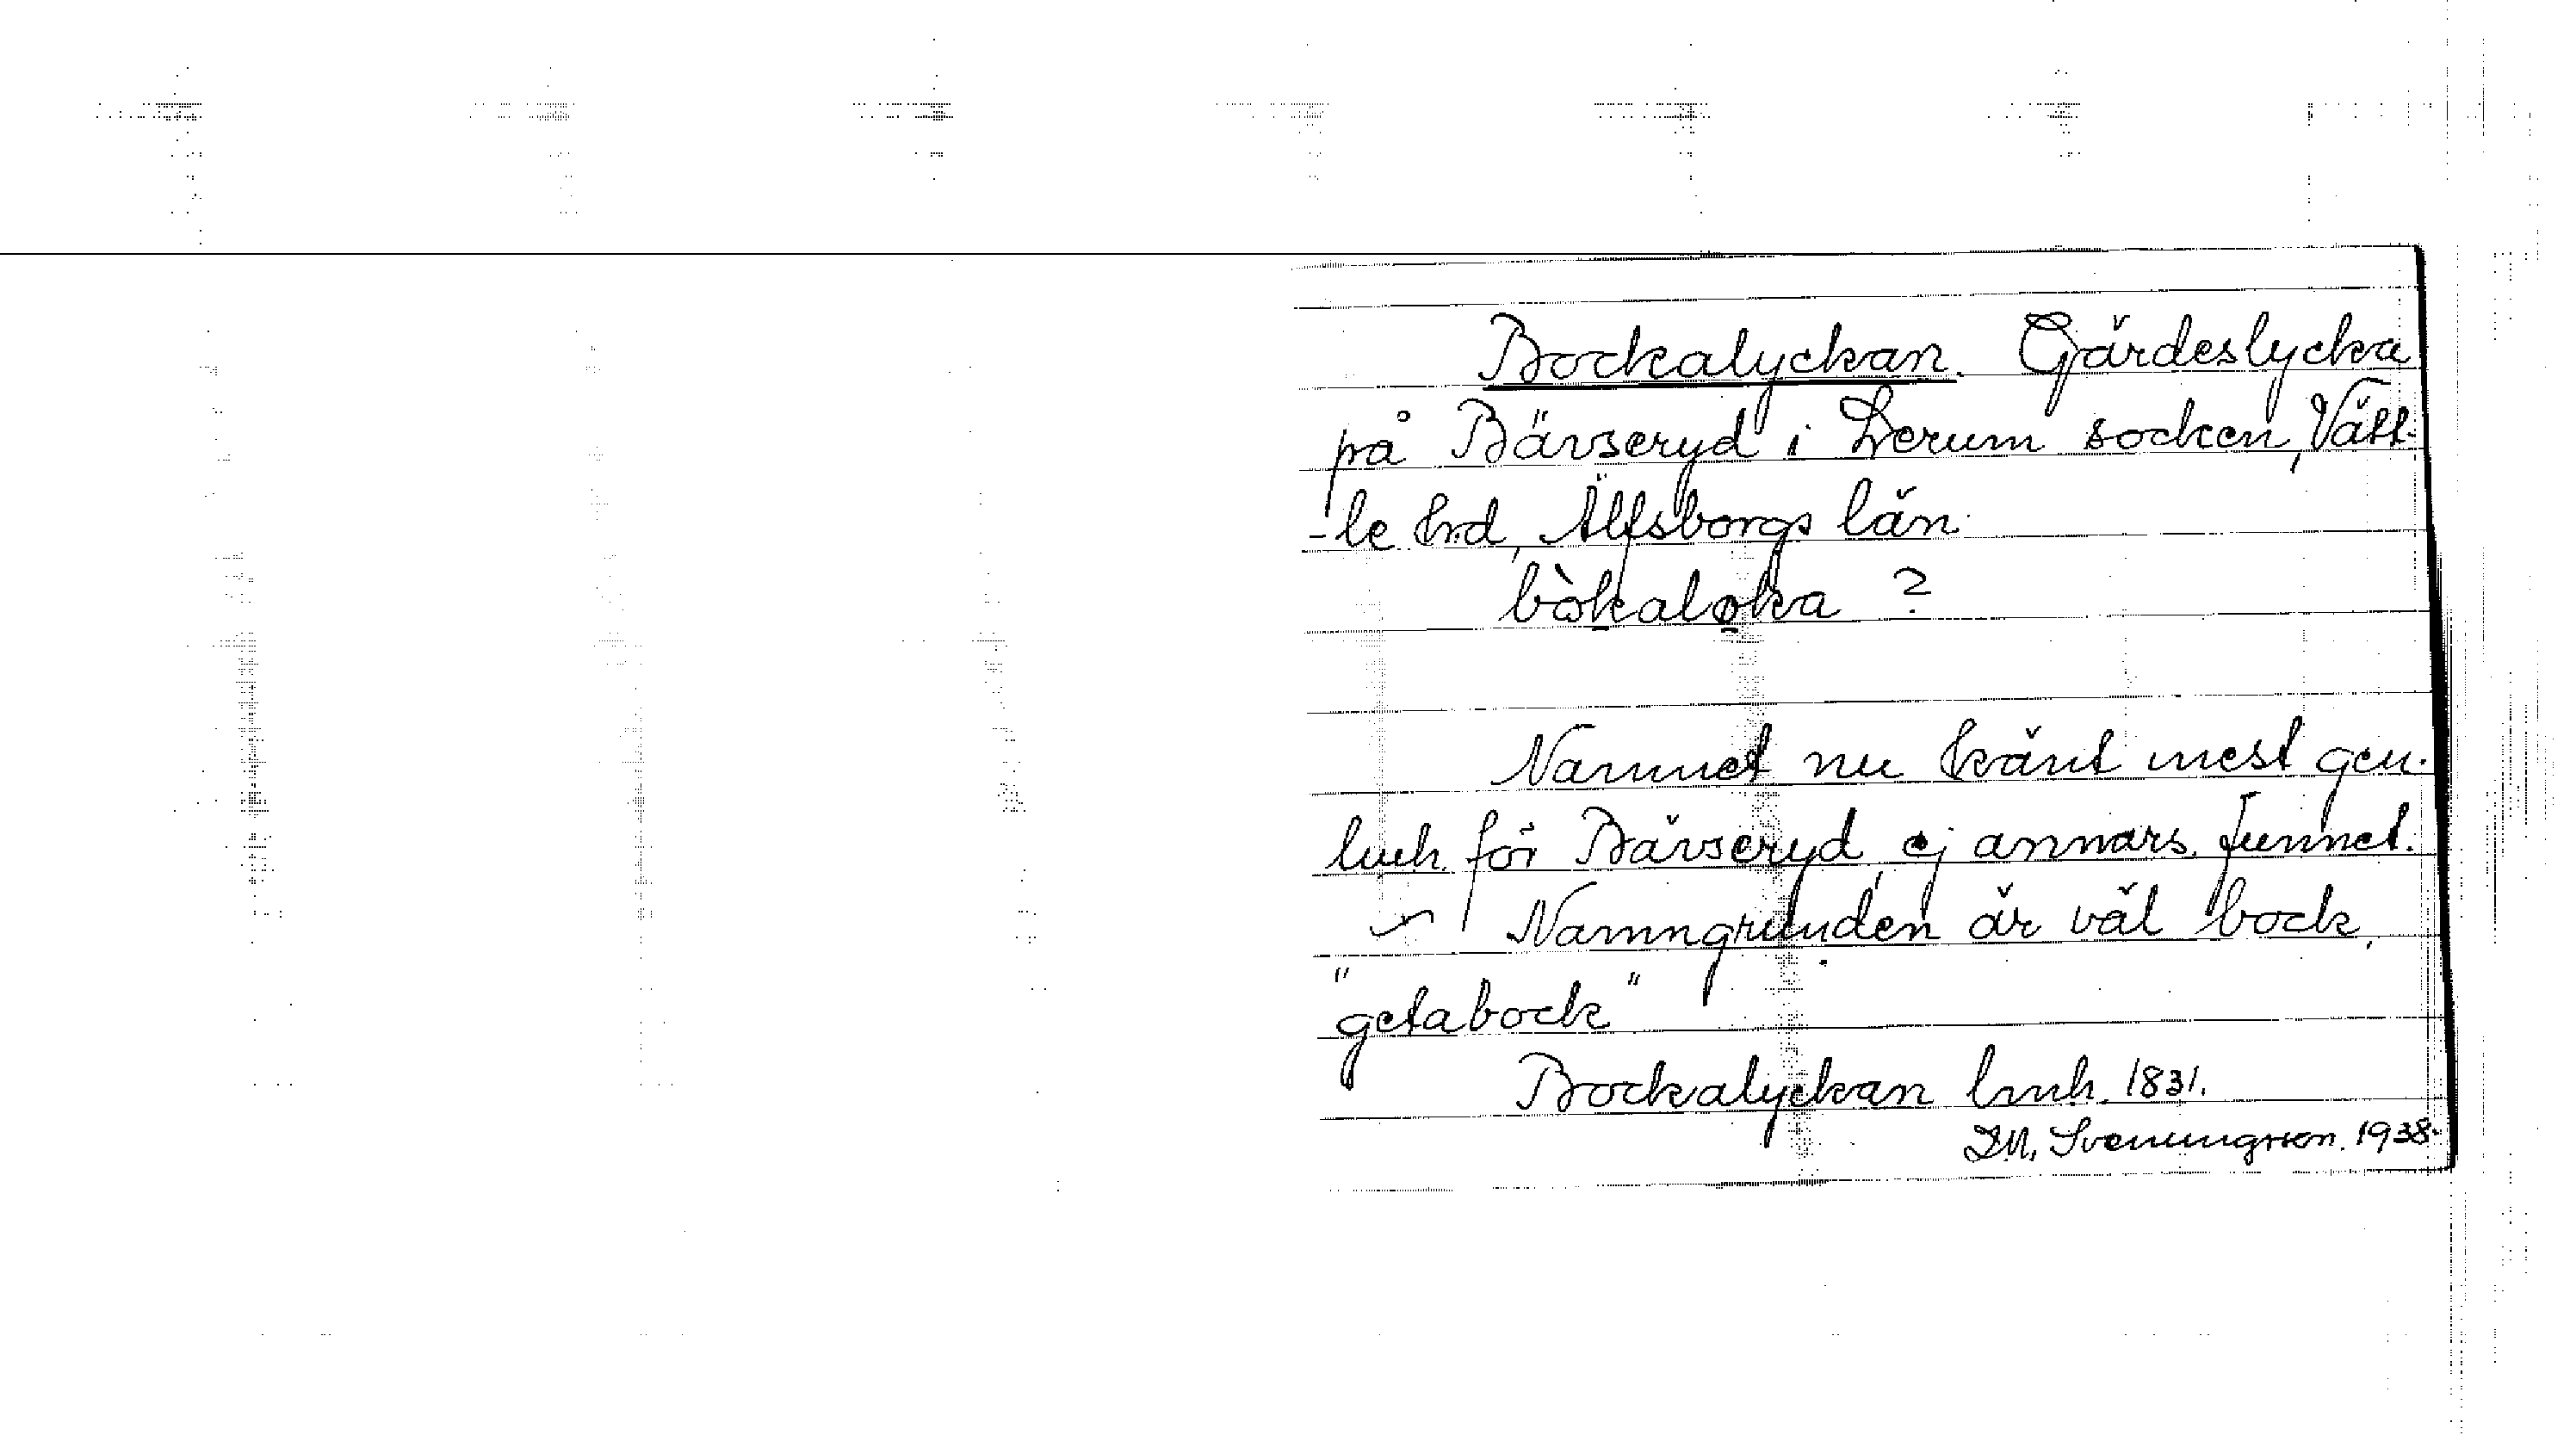 Bockalyckan. Gärdeslycka
på Bävseryd i Lerum socken, Vätt-
-le hrd, Älfsborgs län.
bòkaløka ?
Namnet nu känt mest gen.
lmh. för Bävseryd, ej annars funnet.
Namngrunden är väl bock,
"getabock"
Bockalyckan lmh. 1831.
Svenungsson. 1938.